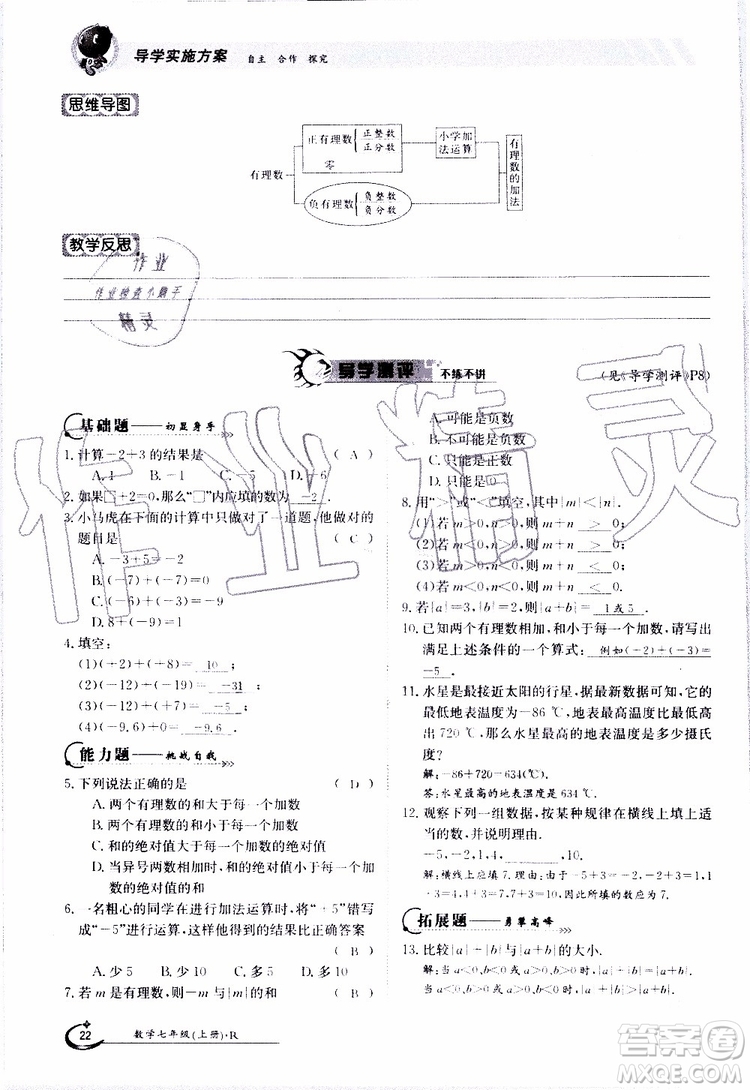 导学实施方案 自主 合作 探究
思维导图
有理数
正有理数 正整数 正分数
零
负有理数 负整数 负分数
小学加法运算
有理数的加法
教学反思
作业
作业检查小助手
精灵
导学测评 不练不讲
(见《导学测评》P8)
基础题——初显身手
1. 计算-2+3的结果是 ( A )
A. 1 B. -1 C. -5 D. -6
2. 如果□+2=0,那么“□”内应填的数为 -2 .
3. 小马虎在下面的计算中只做对了一道题,他做对的
题目是 ( C )
A. -3+5=-2
B. (-2)+(-2)=0
D. 8+(-9)=-2
4. 填空:
(1)(+2)+(+8)= 10 ;
(2)(-12)+(-19)= -31 ;
(3)(-18)+(+13)= -5 ;
(4)(-9.6)+0= -9.6 .
能力题——挑战自我
5. 下列说法正确的是 ( D )
A. 两个有理数的和大于每一个加数
C. 和的绝对值大于每个加数的绝对值
D. 当异号两个有理数相加时,和的绝对值小于加数
绝对值的和
6. 一名粗心的同学在进行加法运算时,将“+5”错写
成“-5”进行运算,这样他得到的结果比正确答案
( B )
A. 少5 B. 少10 C. 多5 D. 多10
7. 若m是有理数,则m与|m|的和 ( B )
A. 可能是负数
B. 不可能是负数
C. 只能是正数
D. 只能是0
8. 用“>”或“<”填空,其中|m|>|n|:
(1)若m>0,n>0,则m+n > 0;
(2)若m<0,n<0,则m+n < 0;
(3)若m>0,n<0,则m+n > 0;
(4)若m<0,n>0,则m+n < 0.
9. 若|a|=3,|b|=2,则|a+b|= 1或5 .
10. 已知两个有理数相加,和小于每一个加数,请写出
满足上述条件的一个算式: 例如(-2)+(-3)=
-5 .
11. 水星是最接近太阳的行星,据最新数据可知,它的
最低地表温度为-86 ℃,地表最高温度比最低高
出720 ℃,那么水星最高的地表温度是多少摄氏
度?
解:-86+720=634(℃)
答:水星最高的地表温度为634 ℃.
12. 观察下列一组数据,按某种规律在横线上填上适
当的数,并说明理由.
-5,-2,1,4, ,10.
13. 比较|a|+|b|与|a+b|的大小.
22 数学七年级(上册)·R
作业精灵